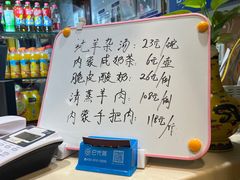 纯羊杂汤: 23元/碗
内蒙咸奶茶: 6元/壶
脆皮酸奶: 26元/例
清蒸羊肉: 108元/例
内蒙手把肉: 118元/斤